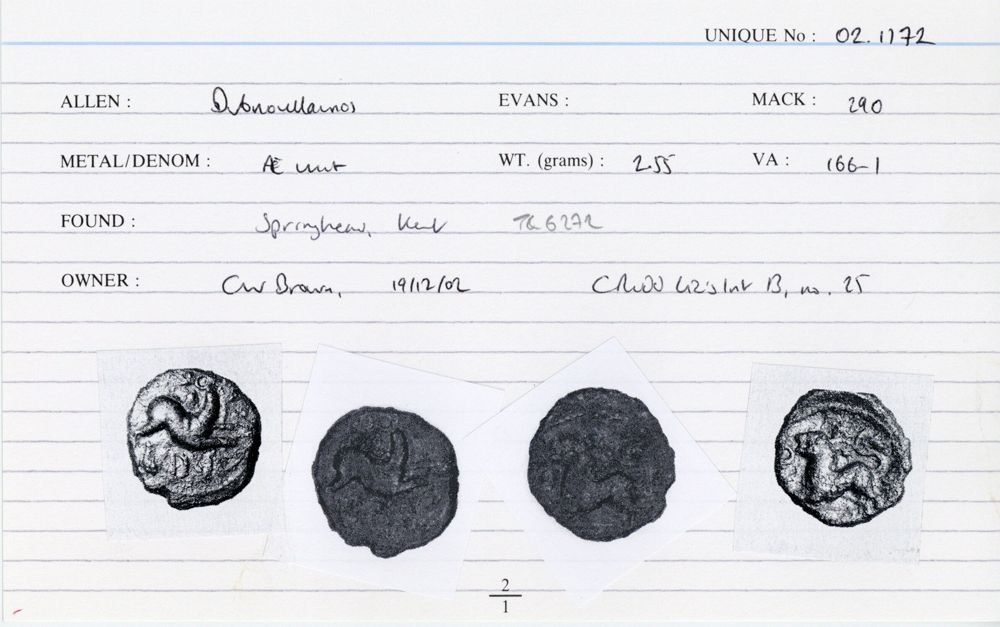 UNIQUE No : 02.1172
ALLEN : Dubnovellaunos EVANS : MACK : 290
METAL/DENOM : Æ unit WT. (grams) : 2.55 VA : 166-1
FOUND : Springhead, Kent TQ 6272
OWNER : CW Brown, 19/12/02 List B, no. 25
2
1